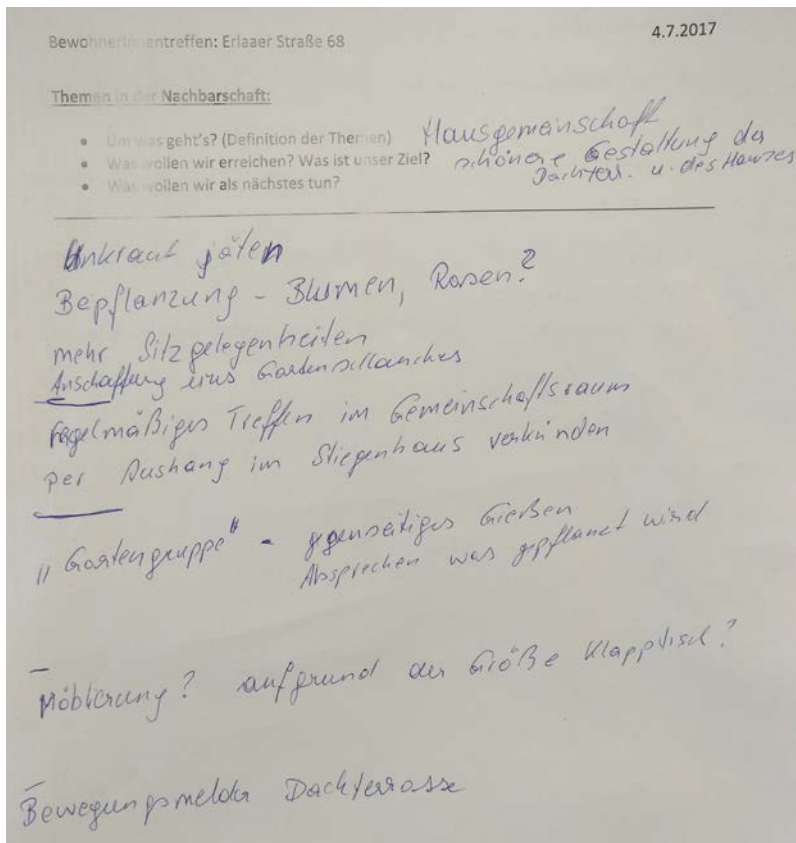 BewohnerInnentreffen: Erlaaer Straße 68
4.7.2017
Themen in der Nachbarschaft:
• Um was geht's? (Definition der Themen) Hausgemeinschaft
• Was wollen wir erreichen? Was ist unser Ziel? schönere Gestaltung der
Dachterr. u. des Hauses
• Was wollen wir als nächstes tun?
Unkraut jäten
Bepflanzung - Blumen, Rosen?
mehr Sitzgelegenheiten
Anschaffung eines Gartenschlauches
regelmäßiges Treffen im Gemeinschaftsraum
per Aushang im Stiegenhaus verkünden
"Gartengruppe" - gegenseitiges Gießen
Absprechen was gepflanzt wird
- Möblierung? aufgrund der Größe Klapptisch?
- Bewegungsmelder Dachterrasse